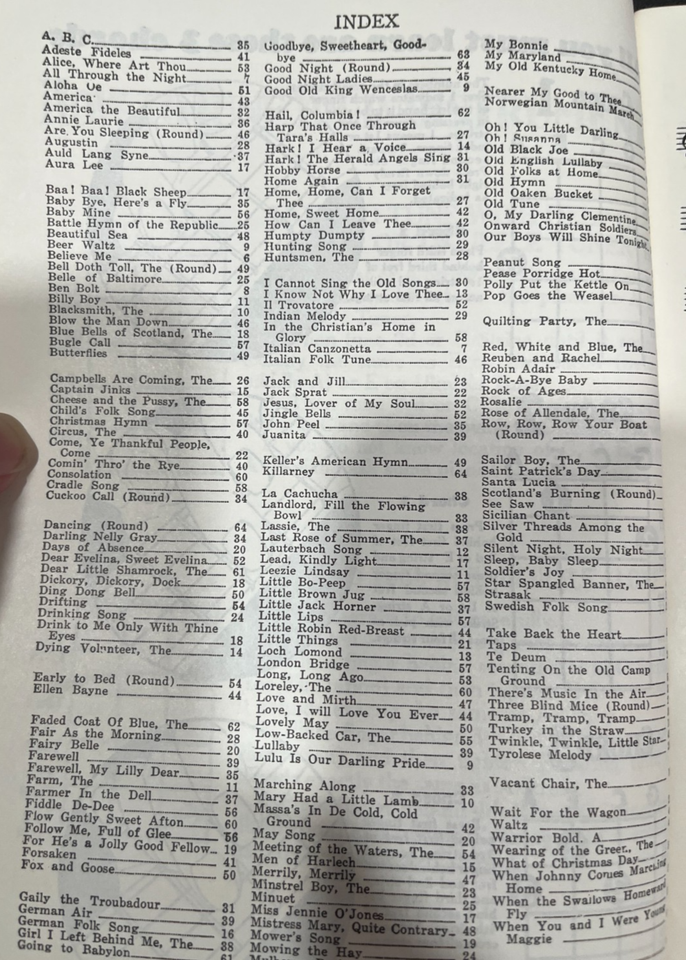 INDEX
A. B. C. 35
Adeste Fideles 41
Alice, Where Art Thou 53
All Through the Night 7
Aloha Oe 51
America 43
America the Beautiful 32
Annie Laurie 36
Are You Sleeping (Round) 46
Augustin 28
Auld Lang Syne 37
Aura Lee 17
Baa! Baa! Black Sheep 17
Baby Bye, Here's a Fly 35
Baby Mine 56
Battle Hymn of the Republic 25
Beautiful Sea 48
Beer Waltz 9
Believe Me 6
Bell Doth Toll, The (Round) 49
Belle of Baltimore 25
Ben Bolt 8
Billy Boy 11
Blacksmith, The 10
Blow the Man Down 46
Blue Bells of Scotland, The 18
Bugle Call 57
Butterflies 49
Campbells Are Coming, The 26
Captain Jinks 15
Cheese and the Pussy, The 58
Child's Folk Song 45
Christmas Hymn 57
Circus, The 40
Come, Ye Thankful People,
Come 22
Comin' Thro' the Rye 40
Consolation 60
Cradle Song 58
Cuckoo Call (Round) 34
Dancing (Round) 64
Darling Nelly Gray 34
Days of Absence 20
Dear Evelina, Sweet Evelina 52
Dear Little Shamrock, The 61
Dickory, Dickory, Dock 18
Ding Dong Bell 50
Drifting 54
Drinking Song 24
Drink to Me Only With Thine
Eyes 18
Dying Volunteer, The 14
Early to Bed (Round) 54
Ellen Bayne 44
Faded Coat Of Blue, The 62
Fair As the Morning 28
Fairy Belle 20
Farewell 39
Farewell, My Lilly Dear 35
Farm, The 11
Farmer In the Dell 37
Fiddle De-Dee 56
Flow Gently Sweet Afton 60
Follow Me, Full of Glee 56
For He's a Jolly Good Fellow 19
Forsaken 41
Fox and Goose 50
Gaily the Troubadour 31
German Air 39
German Folk Song 16
Girl I Left Behind Me, The 38
Going to Babylon 61
Goodbye, Sweetheart, Good-
bye 63
Good Night (Round) 34
Good Night Ladies 45
Good Old King Wenceslas 9
Hail, Columbia! 62
Harp That Once Through
Tara's Halls 27
Hark! I Hear a Voice 14
Hark! The Herald Angels Sing 31
Hobby Horse 30
Home Again 31
Home, Home, Can I Forget
Thee 27
Home, Sweet Home 42
How Can I Leave Thee 42
Humpty Dumpty 30
Hunting Song 29
Huntsmen, The 28
I Cannot Sing the Old Songs 30
I Know Not Why I Love Thee 13
Il Trovatore 52
Indian Melody 29
In the Christian's Home in
Glory 58
Italian Canzonetta 7
Italian Folk Tune 46
Jack and Jill 23
Jack Sprat 22
Jesus, Lover of My Soul 32
Jingle Bells 52
John Peel 35
Juanita 39
Keller's American Hymn 49
Killarney 64
La Cachucha 38
Landlord, Fill the Flowing
Bowl 33
Lassie, The 38
Last Rose of Summer, The 37
Lauterbach Song 12
Lead, Kindly Light 17
Leezie Lindsay 11
Little Bo-Peep 57
Little Brown Jug 58
Little Jack Horner 37
Little Lips 57
Little Robin Red-Breast 44
Little Things 21
Loch Lomond 13
London Bridge 57
Long, Long Ago 53
Loreley, The 60
Love and Mirth 47
Love, I will Love You Ever 44
Lovely May 50
Low-Backed Car, The 55
Lullaby 39
Lulu Is Our Darling Pride 9
Marching Along 33
Mary Had a Little Lamb 10
Massa's In De Cold, Cold
Ground 42
May Song 20
Meeting of the Waters, The 54
Men of Harlech 15
Merrily, Merrily 47
Minstrel Boy, The 23
Minuet 25
Miss Jennie O'Jones 17
Mistress Mary, Quite Contrary 48
Mower's Song 19
Mowing the Hay 24
My Bonnie
My Maryland
My Old Kentucky Home
Nearer My God to Thee
Norwegian Mountain March
Oh! You Little Darling
Oh! Susanna
Old Black Joe
Old English Lullaby
Old Folks at Home
Old Hymn
Old Oaken Bucket
Old Tune
O, My Darling Clementine
Onward Christian Soldiers
Our Boys Will Shine Tonight
Peanut Song
Pease Porridge Hot
Polly Put the Kettle On
Pop Goes the Weasel
Quilting Party, The
Red, White and Blue, The
Reuben and Rachel
Robin Adair
Rock-A-Bye Baby
Rock of Ages
Rosalie
Rose of Allendale, The
Row, Row, Row Your Boat
(Round)
Sailor Boy, The
Saint Patrick's Day
Santa Lucia
Scotland's Burning (Round)
See Saw
Sicilian Chant
Silver Threads Among the
Gold
Silent Night, Holy Night
Sleep, Baby Sleep
Soldier's Joy
Star Spangled Banner, The
Strasak
Swedish Folk Song
Take Back the Heart
Taps
Te Deum
Tenting On the Old Camp
Ground
There's Music In the Air
Three Blind Mice (Round)
Tramp, Tramp, Tramp
Turkey in the Straw
Twinkle, Twinkle, Little Star
Tyrolese Melody
Vacant Chair, The
Wait For the Wagon
Waltz
Warrior Bold, A
Wearing of the Green, The
What of Christmas Day
When Johnny Comes Marching
Home
When the Swallows Homeward
Fly
When You and I Were Young
Maggie